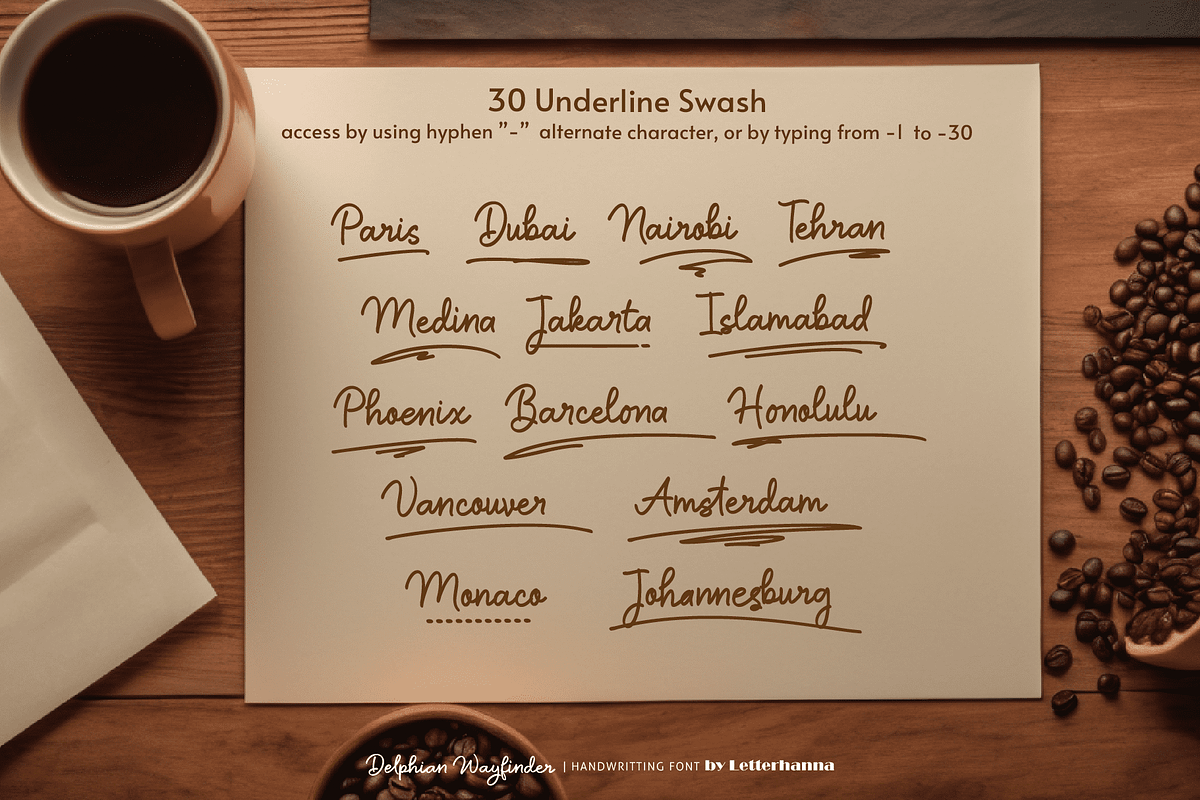 30 Underline Swash
access by using hyphen "-" alternate character, or by typing from -1 to -30
Paris Dubai Nairobi Tehran
Medina Jakarta Islamabad
Phoenix Barcelona Honolulu
Vancouver Amsterdam
Monaco Johannesburg
Delphian Wayfinder | HANDWRITTING FONT by Letterhanna